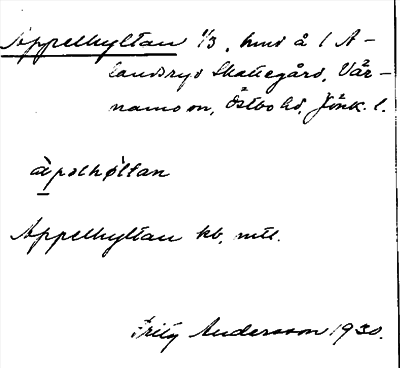 Appelhyltan 1/3, hmd å 1 A-
landsryd Skattegård, Vär-
namo sn, Östbo hd, Jönk. l.
àpəlhø̀ltan
Appelhyltan kb, mtl.
Fritz Andersson 1930.